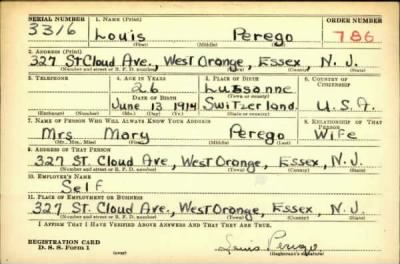 SERIAL NUMBER 1. NAME (Print) ORDER NUMBER
3316 Louis Perego 786
(First) (Middle) (Last)
2. ADDRESS (Print)
327 St Cloud Ave., West Orange, Essex, N. J.
(Number and street or R. F. D. number) (Town) (County) (State)
3. TELEPHONE 4. AGE IN YEARS 5. PLACE OF BIRTH 6. COUNTRY OF CITIZENSHIP
26 Lussanne
DATE OF BIRTH (Town or county)
June 13 1914 Switzerland. U.S.A.
(Exchange) (Number) (Mo.) (Day) (Yr.) (State or country)
7. NAME OF PERSON WHO WILL ALWAYS KNOW YOUR ADDRESS 8. RELATIONSHIP OF THAT PERSON
Mrs Mary Perego Wife
(Mr., Mrs., Miss) (First) (Middle) (Last)
9. ADDRESS OF THAT PERSON
327 St. Cloud Ave, West Orange, Essex, N.J.
(Number and street or R. F. D. number) (Town) (County) (State)
10. EMPLOYER'S NAME
Self
11. PLACE OF EMPLOYMENT OR BUSINESS
327 St. Cloud Ave., West Orange, Essex, N.J.
(Number and street or R. F. D. number) (Town) (County) (State)
I AFFIRM THAT I HAVE VERIFIED ABOVE ANSWERS AND THAT THEY ARE TRUE.
REGISTRATION CARD
D. S. S. Form 1 (over) Louis Perego
(Registrant's signature)